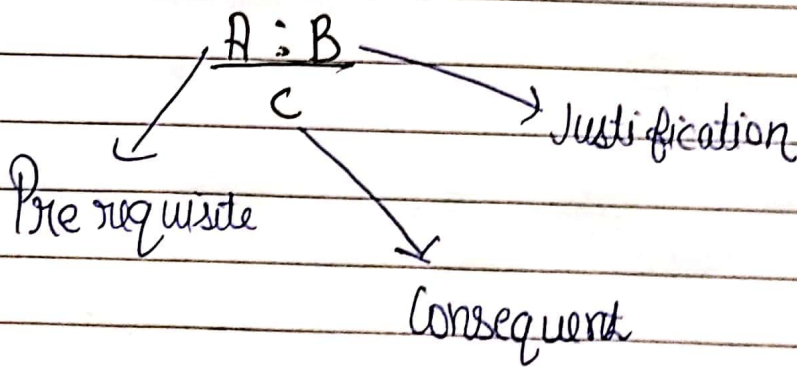 A : B
C
Justification
Pre requisite
Consequent